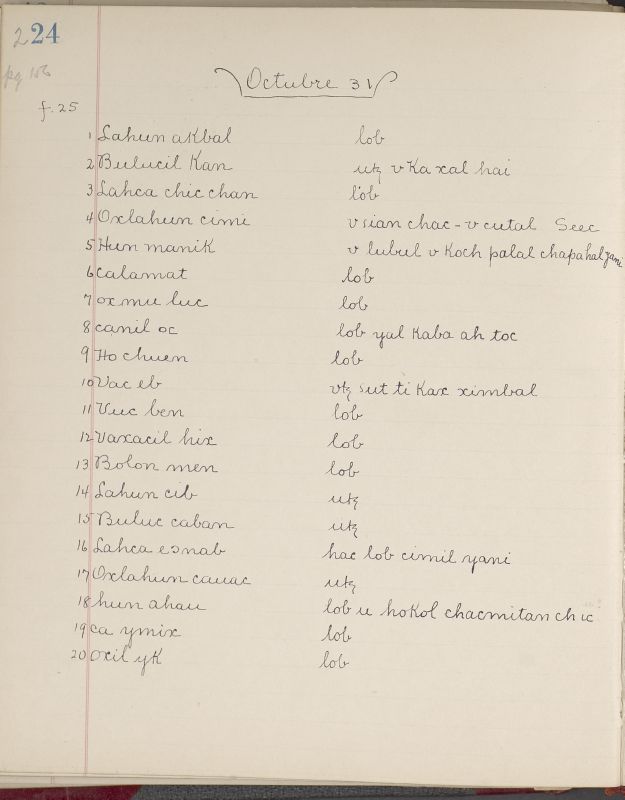 224
pg 156
Octubre 31
f. 25
1 Lahun akbal lob
2 Bulucil Kan utz v Kaxal hai
3 Lahca chic chan lob
4 Oxlahun cimi v sian chac - v cutal Seec
5 Hun manik v lubul v Koch palal chapahal yani
6 calamat lob
7 ox mu luc lob
8 canil oc lob yal Kaba ah toc
9 Ho chuen lob
10 Vac eb vtz sut ti Kax ximbal
11 Vuc ben lob
12 Vaxacil hix lob
13 Bolon men lob
14 Lahun cib utz
15 Buluc caban utz
16 Lahca esnab hac lob cimil yani
17 Oxlahun cauac utz
18 hun ahau lob u hokol chacmitan ch ic
19 ca ymix lob
20 oxil yK lob